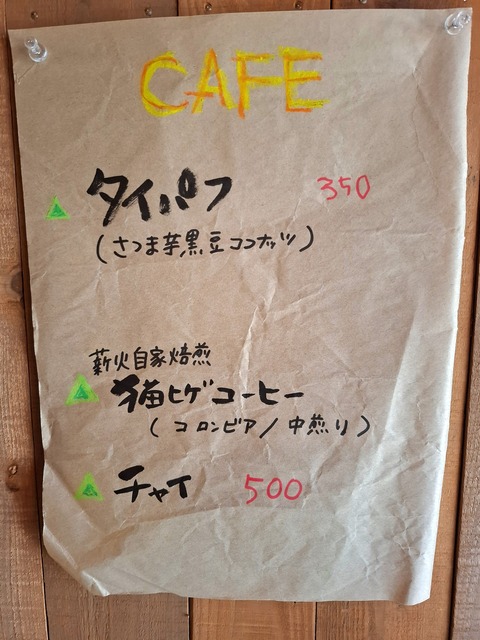 CAFE
タイパフ 350
(さつま芋黒豆ココナッツ)
薪火自家焙煎
猫ヒゲコーヒー
(コロンビア/中煎り)
チャイ 500